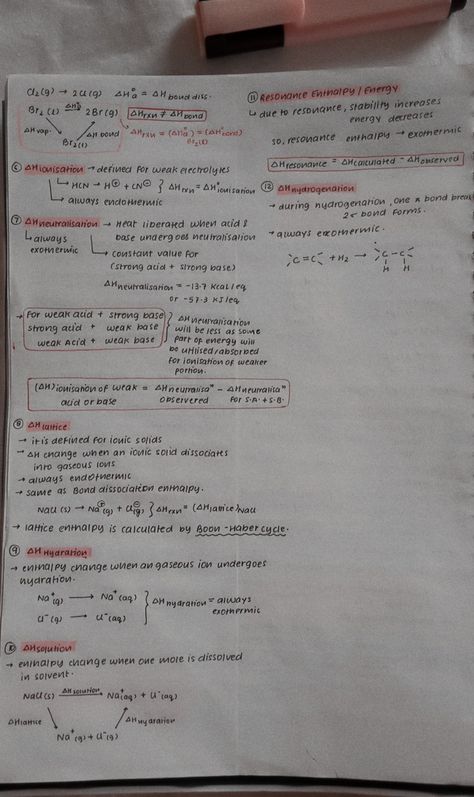 Cl₂(g) → 2Cl(g) ΔH°a = ΔH bond diss.
Br₂(l) → 2Br(g) ΔHrxn ≠ ΔHbond
ΔHvap. ΔH bond
Br₂(l)
⑥ ΔHionisation → defined for weak electrolytes
↳ HCN → H⊕ + CN⊖ } ΔHrxn = ΔH°ionisation
↳ always endothermic
⑦ ΔHneutralisation → Heat liberated when acid &
↳ always base undergoes neutralisation
exothermic ↳ constant value for
(strong acid + strong base)
ΔHneutralisation = -13.7 kcal/eq
or -57.3 KJ/eq
→ For weak acid + strong base
strong acid + weak base
weak acid + weak base
} ΔHneutralisation
will be less as some
part of energy will
be utilised/absorbed
for ionisation of weaker
portion.
(ΔH)ionisation of weak = ΔHneutralisaⁿ - ΔHneutralisaⁿ
acid or base observered for S.A. + S.B.
⑧ ΔHlattice
→ it is defined for ionic solids
→ ΔH change when an ionic solid dissociates
into gaseous ions
→ always endothermic
→ same as Bond dissociation enthalpy.
NaCl(s) → Na⊕(g) + Cl⊖(g) } ΔHrxn = (ΔHlattice)NaCl
→ lattice enthalpy is calculated by Boon-Haber cycle.
⑨ ΔHHydration
→ enthalpy change when an gaseous ion undergoes
hydration.
Na⁺(g) → Na⁺(aq) } ΔHhydration = always
Cl⁻(g) → Cl⁻(aq) exothermic
⑩ ΔHsolution
→ enthalpy change when one mole is dissolved
in solvent.
NaCl(s) ΔHsolution → Na⁺(aq) + Cl⁻(aq)
ΔHlattice ΔHhydration
Na⁺(g) + Cl⁻(g)
⑪ Resonance Enthalpy / Energy
↳ due to resonance, stability increases
energy decreases
so, resonance enthalpy → exothermic
ΔHresonance = ΔHcalculated - ΔHobserved
⑫ ΔHhydrogenation
→ during hydrogenation, one π bond break
2σ bond forms.
→ always exothermic.
C=C + H₂ → C-C
H H